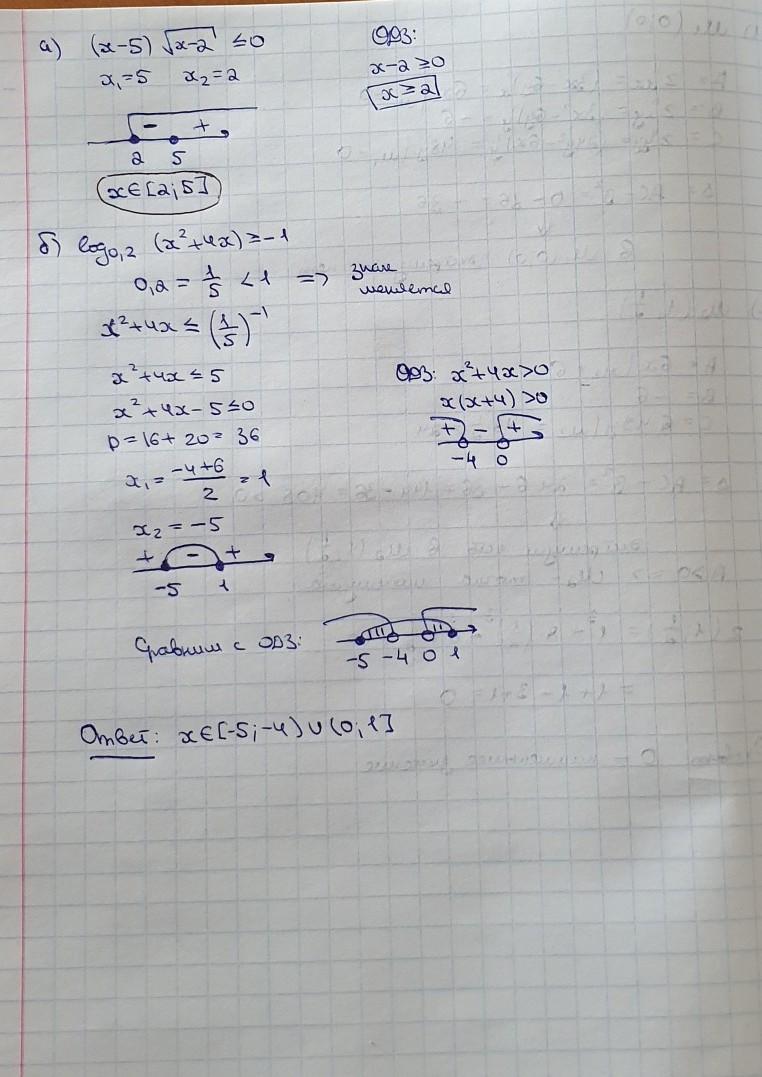 а) (x-5) √x-2 ≤0
x₁=5 x₂=2
ОДЗ:
x-2≥0
x≥2
- +
2 5
x∈[2;5]
б) log₀,₂ (x²+4x)≥-1
0,2 = 1/5 <1 => знак меняется
x²+4x ≤ (1/5)⁻¹
x²+4x ≤ 5
x²+4x-5≤0
D=16+20= 36
x₁= (-4+6)/2 =1
x₂ = -5
+ - +
-5 1
ОДЗ: x²+4x>0
x(x+4)>0
+ - +
-4 0
Сравним с ОДЗ:
-5 -4 0 1
Ответ: x∈[-5;-4)∪(0;1]